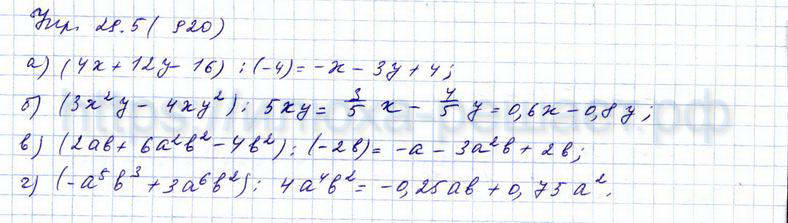 Упр. 29.5 (920)
а) (4x + 12y - 16) : (-4) = -x - 3y + 4;
б) (3x²y - 4xy²) : 5xy = 3/5 x - 4/5 y = 0,6x - 0,8y;
в) (2ab + 6a²b² - 4b²) : (-2b) = -a - 3a²b + 2b;
г) (-a⁵b³ + 3a⁶b²) : 4a⁴b² = -0,25ab + 0,75a².